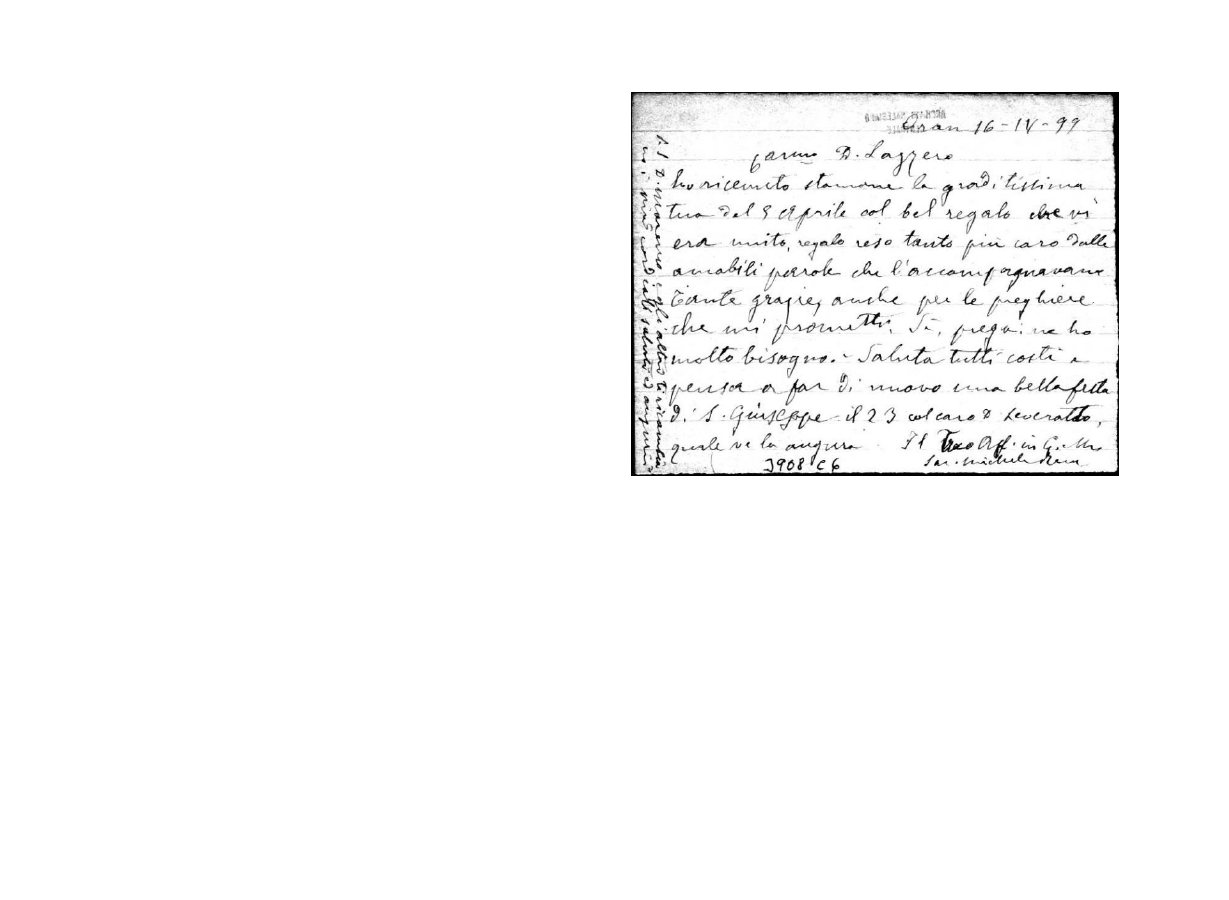 Oran 16-IV-99
Carmo D. Lazzero
ho ricevuto stamane la graditissima
tua del 5 Aprile col bel regalo che vi
era unito, regalo reso tanto più caro dalle
amabili parole che l'accompagnavano
Tante grazie, anche per le preghiere
che mi prometti. Sì, prega: ne ho
molto bisogno. - Saluta tutti costì e
pensa a far di nuovo una bella festa
di S. Giuseppe il 23 col caro D Leveratto,
quale ve la augura. Il Tuo Aff. in G. M.
Sac. Michele Rua
3908 C6
P.S. D. Marenco e gli altri ti ricambiano
i più cordiali saluti ed auguri